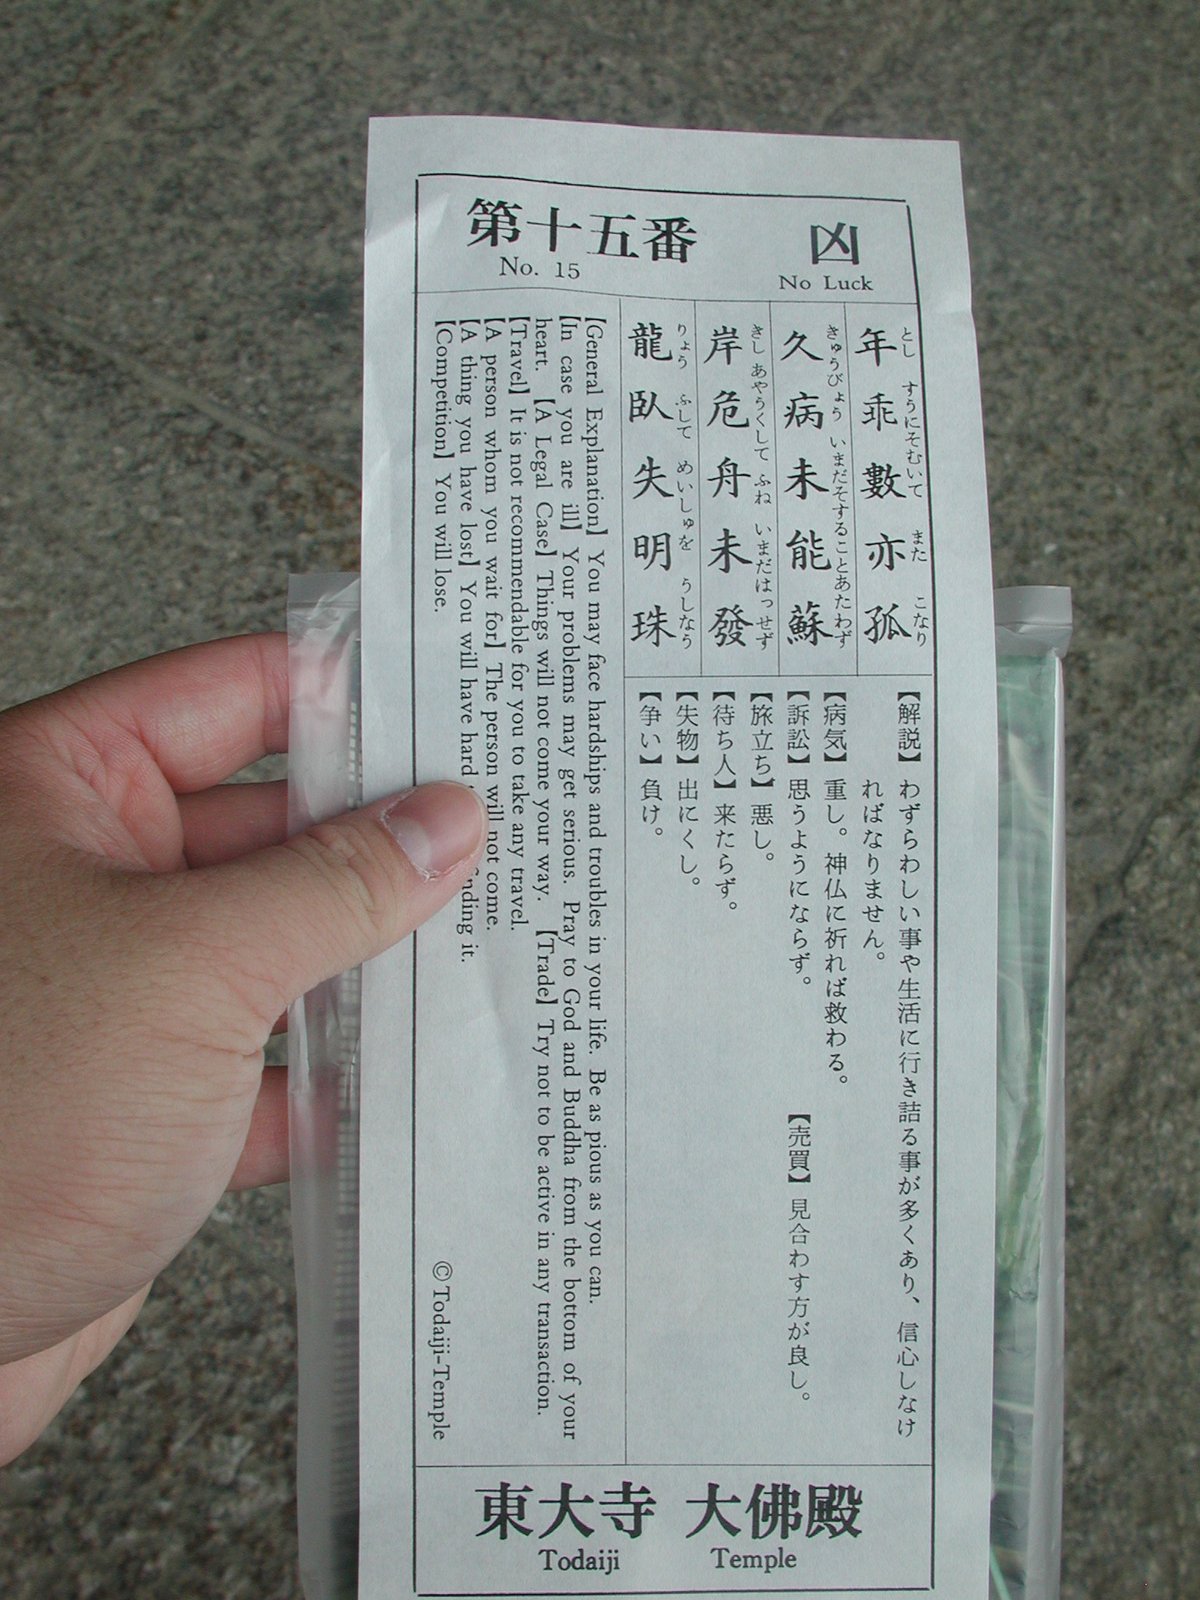 第十五番 凶
No. 15 No Luck
年乖數亦孤
とし すうにそむいて また こなり
久病未能蘇
きゅうびょう いまだそすることあたわず
岸危舟未發
きし あやうくして ふね いまだはっせず
龍臥失明珠
りょう ふして めいしゅを うしなう
【解説】わずらわしい事や生活に行き詰る事が多くあり、信心しなけ
ればなりません。
【病気】重し。神仏に祈れば救わる。
【訴訟】思うようにならず。 【売買】見合わす方が良し。
【旅立ち】悪し。
【待ち人】来たらず。
【失物】出にくし。
【争い】負け。
【General Explanation】 You may face hardships and troubles in your life. Be as pious as you can.
【In case you are ill】 Your problems may get serious. Pray to God and Buddha from the bottom of your
heart. 【A Legal Case】 Things will not come your way. 【Trade】 Try not to be active in any transaction.
【Travel】 It is not recommendable for you to take any travel.
【A person whom you wait for】 The person will not come.
【A thing you have lost】 You will have hard nding it.
【Competition】 You will lose.
© Todaiji-Temple
東大寺 大佛殿
Todaiji Temple